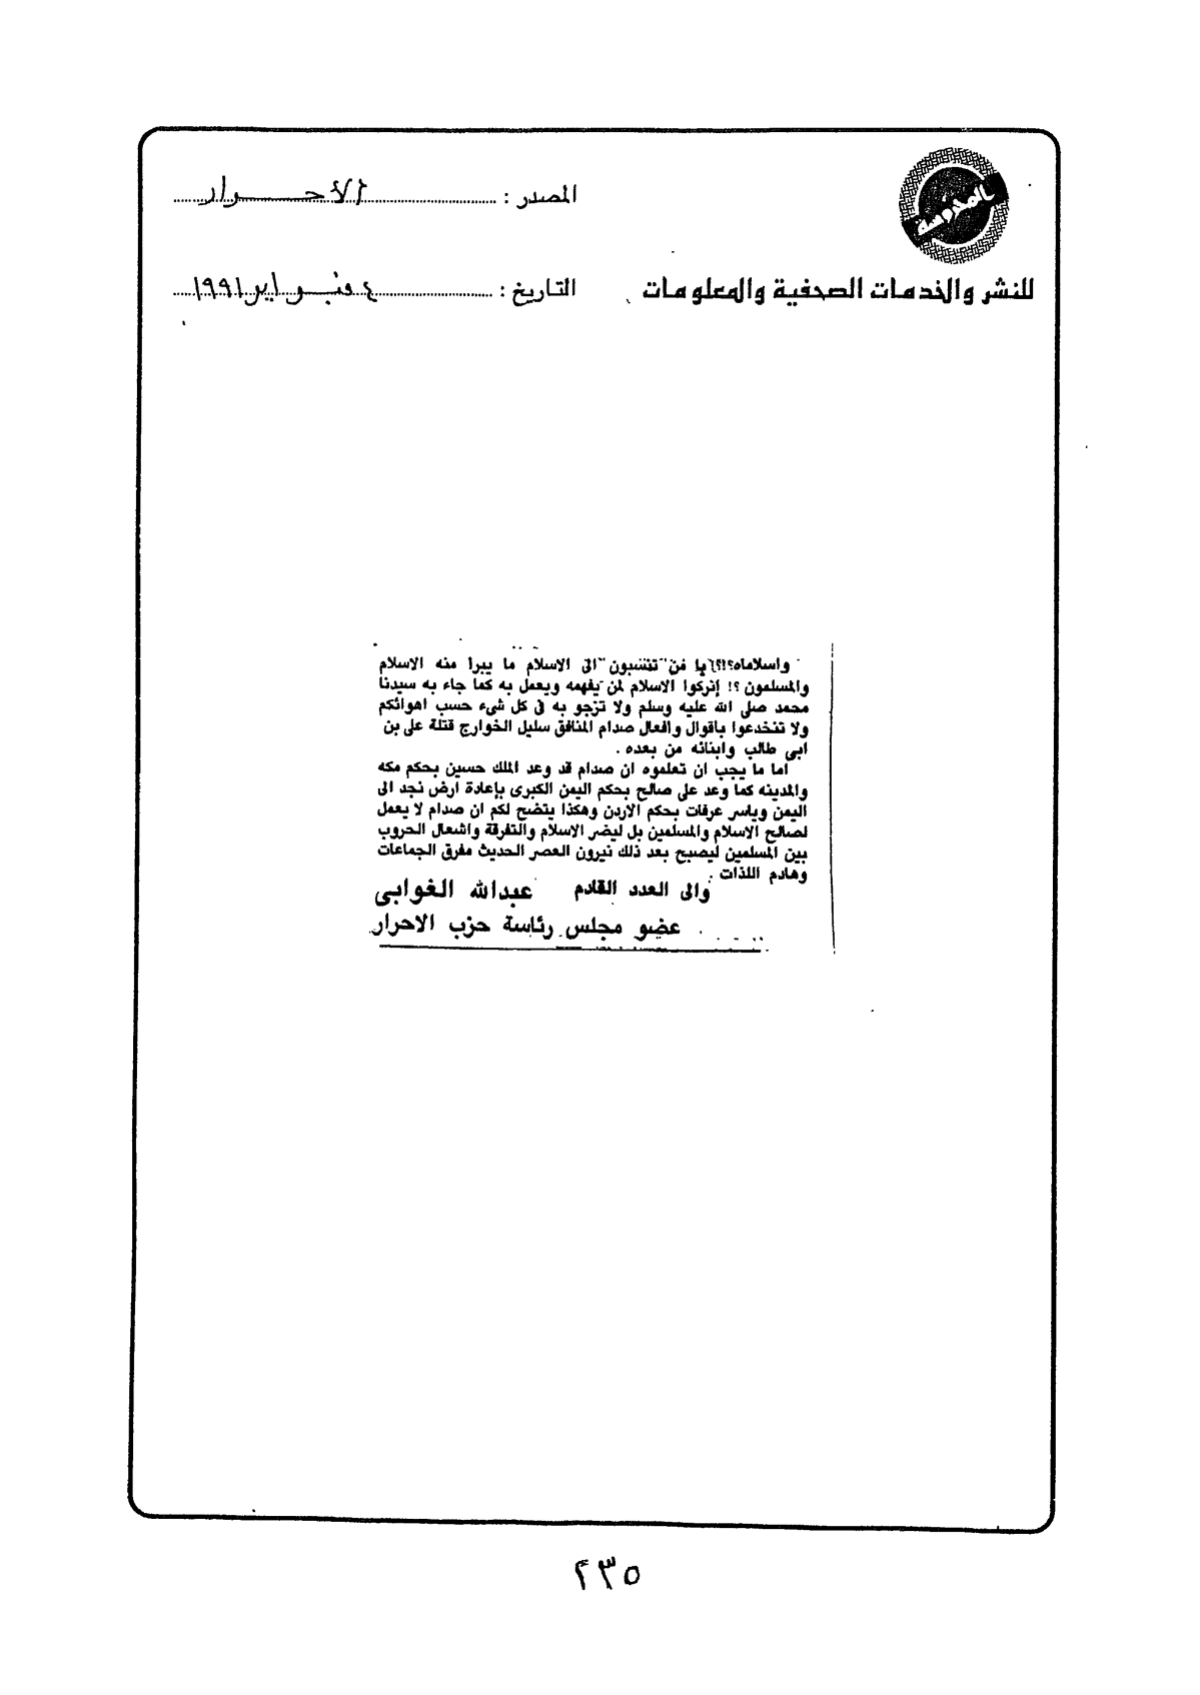 المحروسة
للنشر والخدمات الصحفية والمعلومات
المصدر : الأحرار
التاريخ : ٤ فبراير ١٩٩١
واسلاماه؟!؟ يا من تنسبون الى الاسلام ما يبرا منه الاسلام
والمسلمون ؟! إتركوا الاسلام لمن يفهمه ويعمل به كما جاء به سيدنا
محمد صلى الله عليه وسلم ولا تزجو به فى كل شىء حسب اهوائكم
ولا تنخدعوا باقوال وافعال صدام المنافق سليل الخوارج قتلة على بن
ابى طالب وابنائه من بعده .
اما ما يجب ان تعلموه ان صدام قد وعد الملك حسين بحكم مكه
والمدينه كما وعد على صالح بحكم اليمن الكبرى بإعادة ارض نجد الى
اليمن وياسر عرفات بحكم الاردن وهكذا يتضح لكم ان صدام لا يعمل
لصالح الاسلام والمسلمين بل ليضر الاسلام والتفرقة واشعال الحروب
بين المسلمين ليصبح بعد ذلك نيرون العصر الحديث مفرق الجماعات
وهادم اللذات .
والى العدد القادم عبدالله الغوابى
عضو مجلس رئاسة حزب الاحرار
٢٣٥